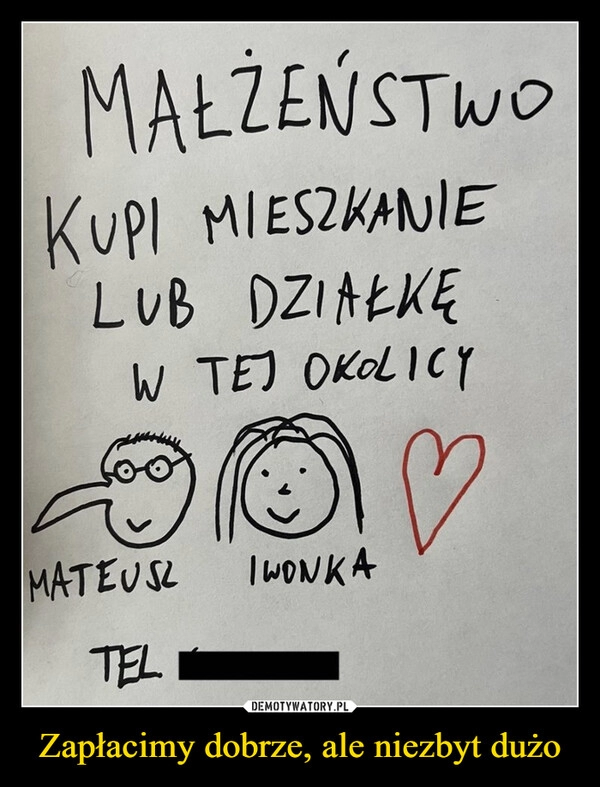 MAŁŻEŃSTWO
KUPI MIESZKANIE
LUB DZIAŁKĘ
W TEJ OKOLICY
MATEUSZ IWONKA
TEL
DEMOTYWATORY.PL
Zapłacimy dobrze, ale niezbyt dużo